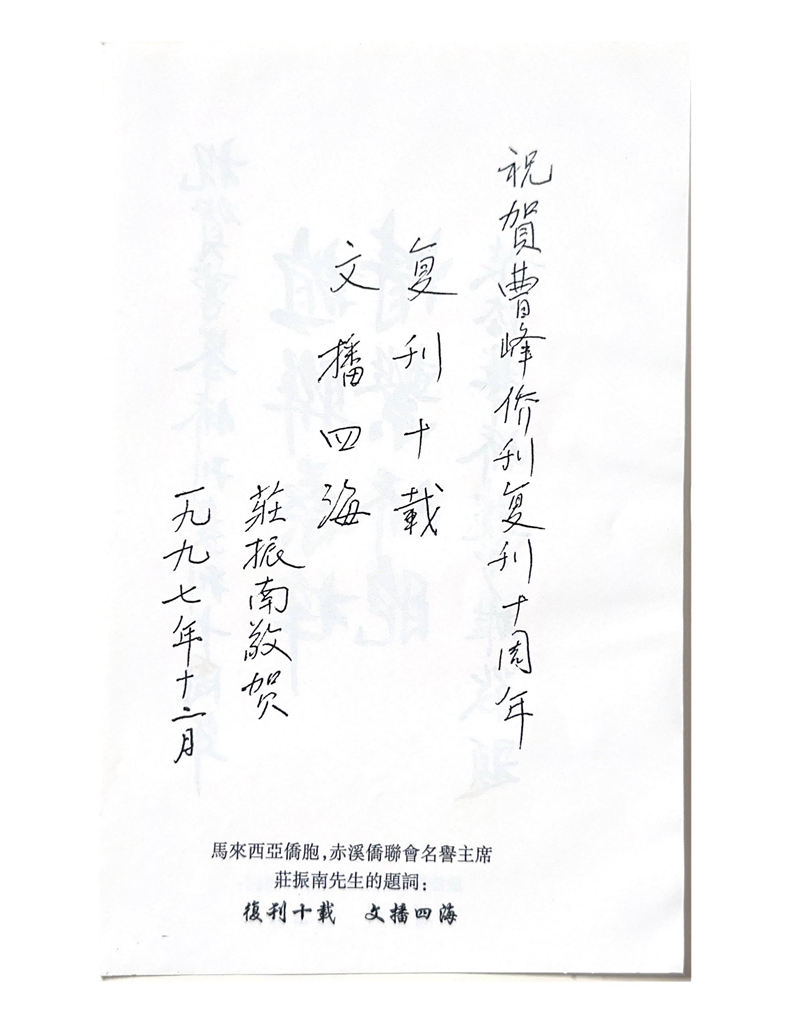 祝賀曹峰侨刊复刊十周年
复刊十載
文播四海
莊振南敬贺
一九九七年十二月
馬來西亞僑胞,赤溪僑聯會名譽主席
莊振南先生的題詞:
復刊十載　文播四海